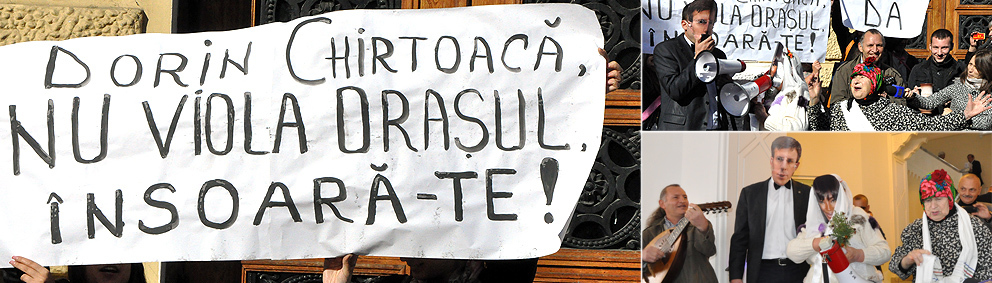 DORIN CHIRTOACĂ,
NU VIOLA ORAȘUL,
ÎNSOARĂ-TE!
CHIRTOACĂ,
NU VIOLA ORAȘUL,
ÎNSOARĂ-TE!
DA